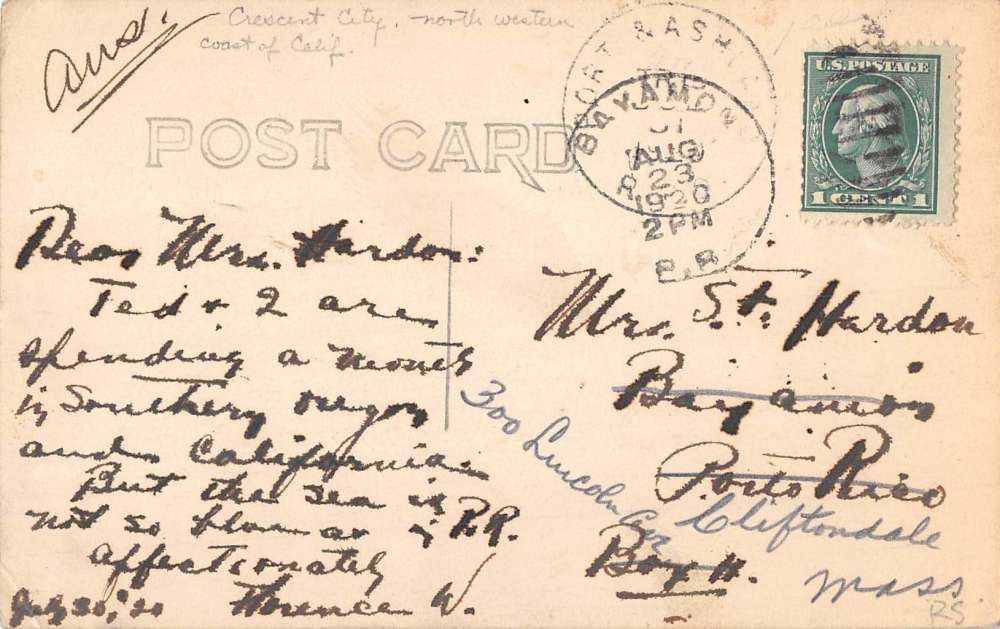 Ans.
Crescent City, north western
coast of Calif.
POST CARD
PORT & ASHLAND
BAYAMON
AUG
23
1920
2 PM
P.R.
U.S. POSTAGE
1 CENT 1
Dear Mrs. Hardon:
Ted + I are
spending a month
in Southern Oregon
and California.
But the sea is
not so blue as in P.R.
affectionately
Florence W.
July 30, '20
Mrs. S. t. Hardon
Bayamon
Porto Rico
Box H.
300 Lincoln Ave
Cliftondale
Mass
RS